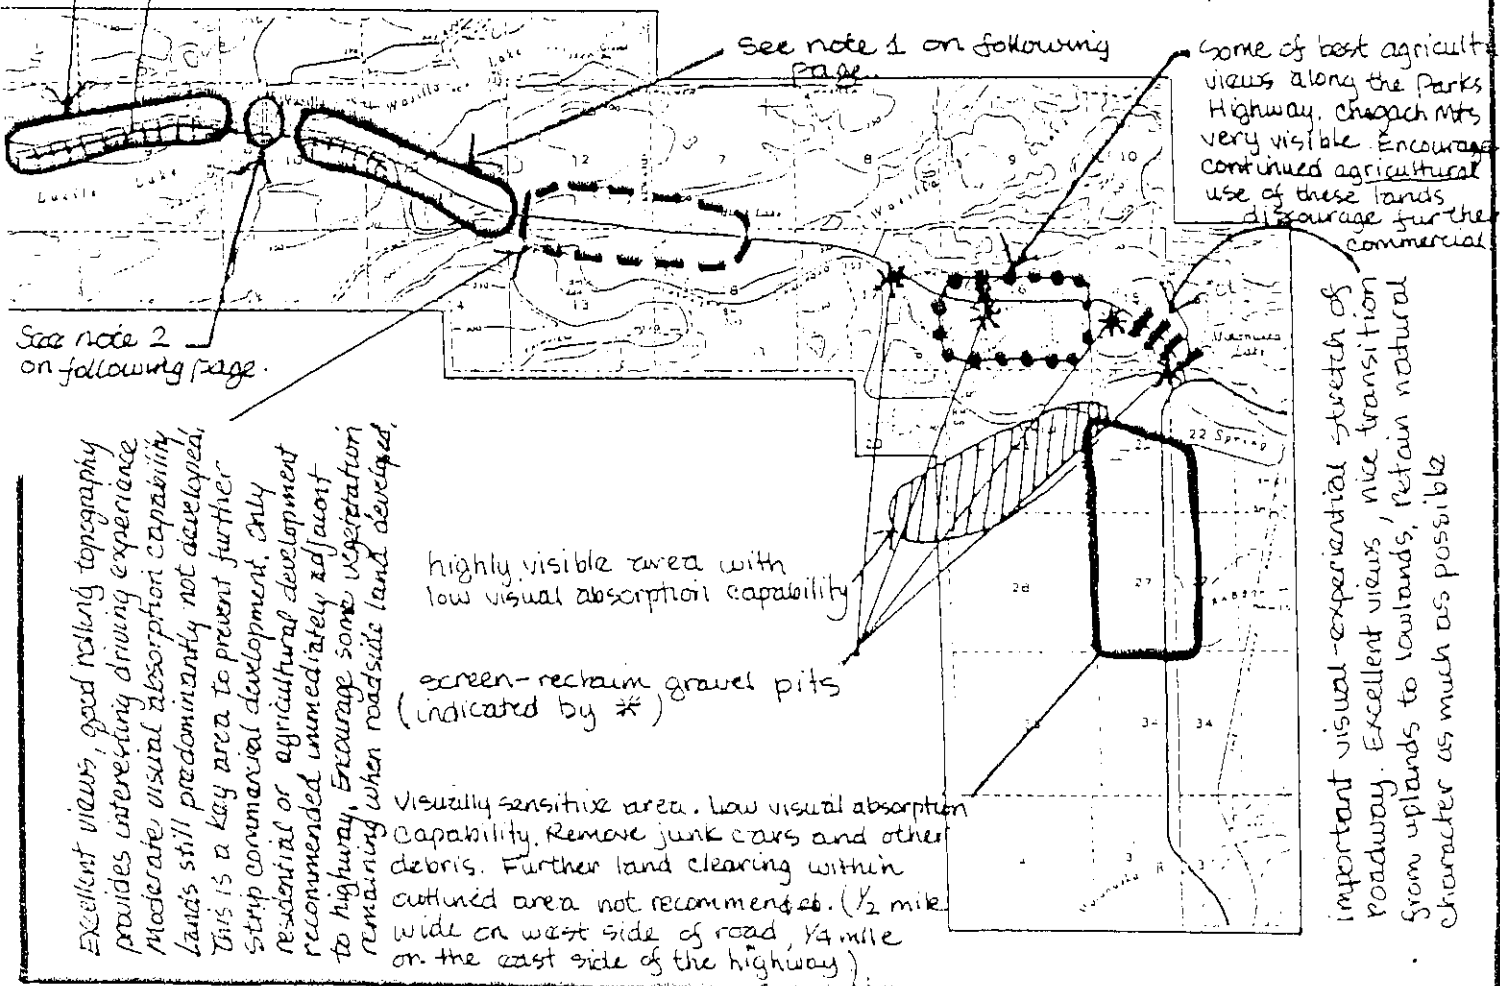 see note 1 on following
page.
some of best agricult
views along the Parks
Highway. Chugach Mts
very visible. Encourage
continued agricultural
use of these lands
discourage further
commercial
See note 2
on following page.
Excellent views, good rolling topography
provides interesting driving experience
Moderate visual absorption capability
Lands still predominantly not developed.
This is a key area to prevent further
strip commercial development. Only
residential or agricultural development
recommended immediately adjacent
to highway. Encourage some vegetation
remaining when roadside land developed.
highly visible area with
low visual absorption capability
screen-reclaim gravel pits
(indicated by *)
Visually sensitive area. Low visual absorption
capability. Remove junk cars and other
debris. Further land clearing within
outlined area not recommended. (1/2 mile
wide on west side of road, 1/4 mile
on the east side of the highway)
important visual-experiential stretch of
roadway. Excellent views, nice transition
from uplands to lowlands, retain natural
character as much as possible
Lucille Lake
Wasilla
Lake
12
7
8
9
10
13
8
16
15
Lake
20
22 Spring
28
27
34
34
4
3
3